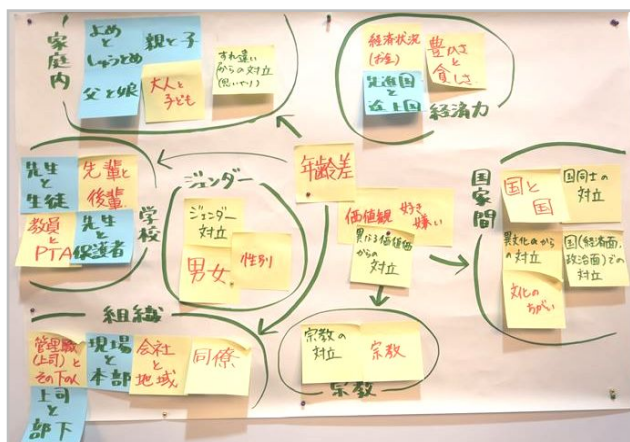 家庭内
よめ
と
しゅうとめ
親と子
父と娘
大人と
子ども
すれ違い
からの対立
(思いやり)
経済状況
(お金)
豊かさ
と
貧しさ
先進国
と
途上国
経済力
先生
と
生徒
先輩
と
後輩
教員
と
PTA
先生
と
保護者
学校
ジェンダー
ジェンダー
対立
男女
性別
年齢差
価値観
好き
嫌い
異なる価値
からの
対立
国家間
国と
国
国同士の
対立
異文化
からの
対立
国(経済面、
政治面)での
対立
文化の
ちがい
組織
管理職
(上司)と
その下の人
現場
と
本部
会社
と
地域
同僚
上司
と
部下
宗教の
対立
宗教
宗教